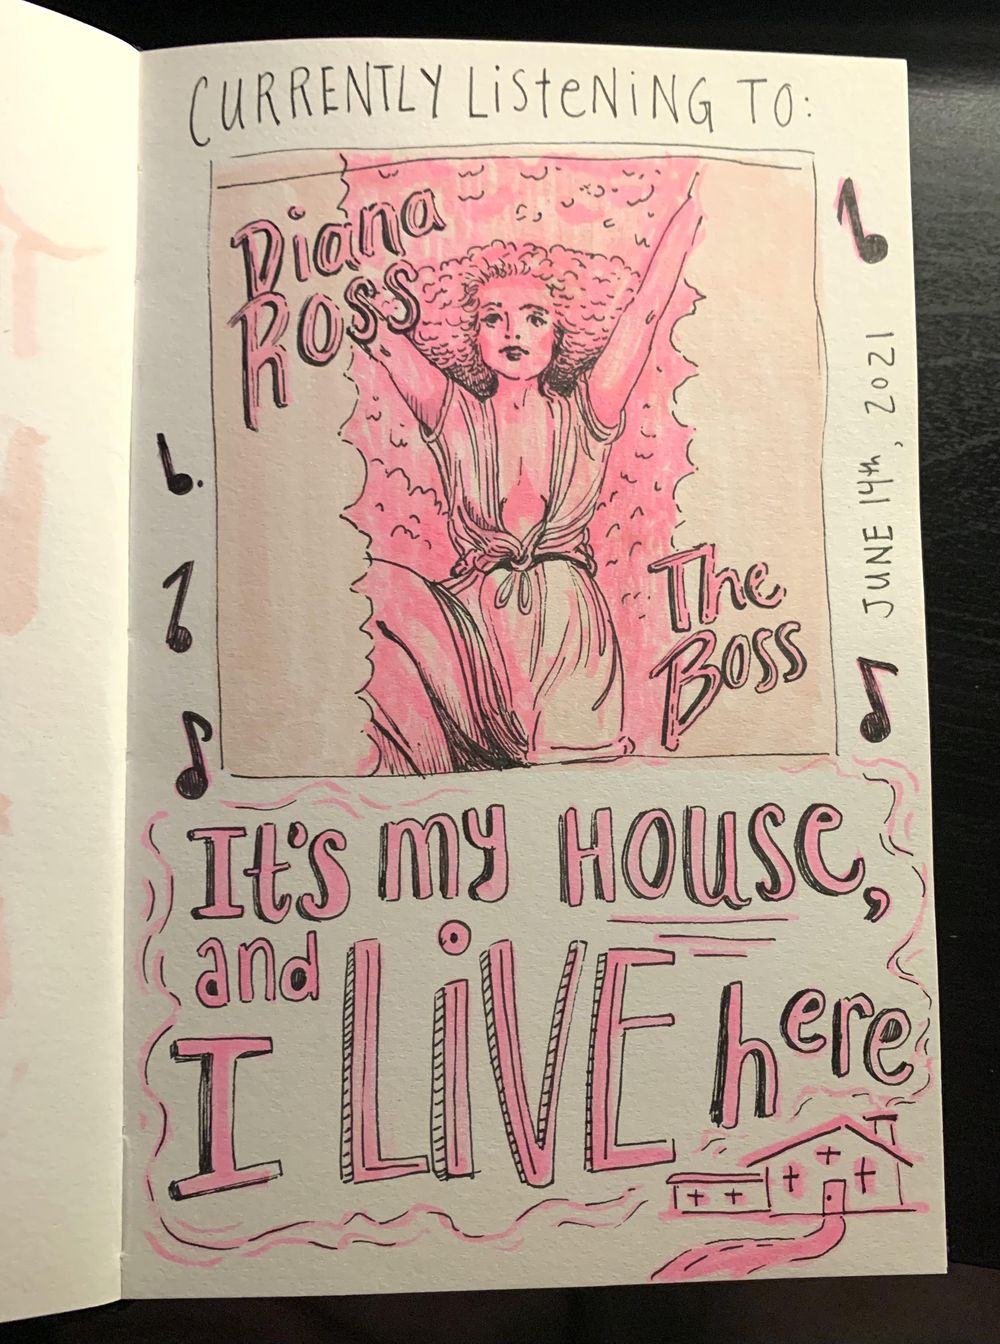 CURRENTLY LiSteNiNG TO:
Diana
Ross
The
Boss
JUNE 14th, 2021
It's my House,
and
I LiVE here